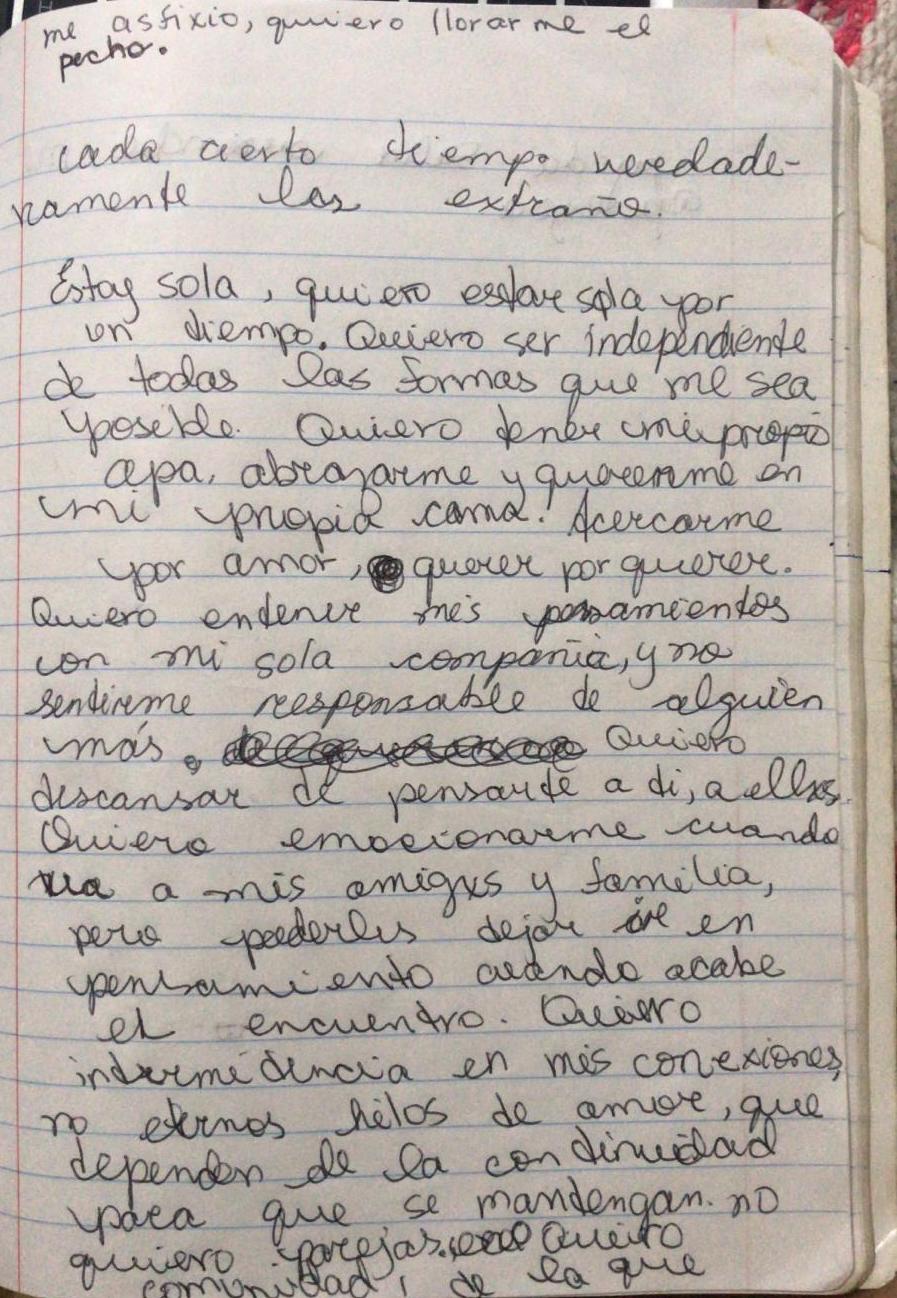 me asfixio, quiero llorarme el
pecho.
cada cierto tiempo veredade-
ramente las extraño.
Estoy sola, quiero estar sola por
un tiempo. Quiero ser independiente
de todas las formas que me sea
posible. Quiero tener mi propio
apa, abrazarme y quererme en
mi propia cama. Acercarme
por amor, querer por querer.
Quiero entener mis pensamientos
con mi sola compañia, y no
sentirme responsable de alguien
más. Quiero
descansar de pensarte a ti, a ellxs.
Quiero emocionarme cuando
vea a mis amigxs y familia,
pero poderlxs dejar ir en
pensamiento cuando acabe
el encuentro. Quiero
intermitencia en mis conexiones,
no eternos hilos de amor, que
dependen de la continuidad
para que se mantengan. no
quiero parejas. Quiero
comunidad, de la que